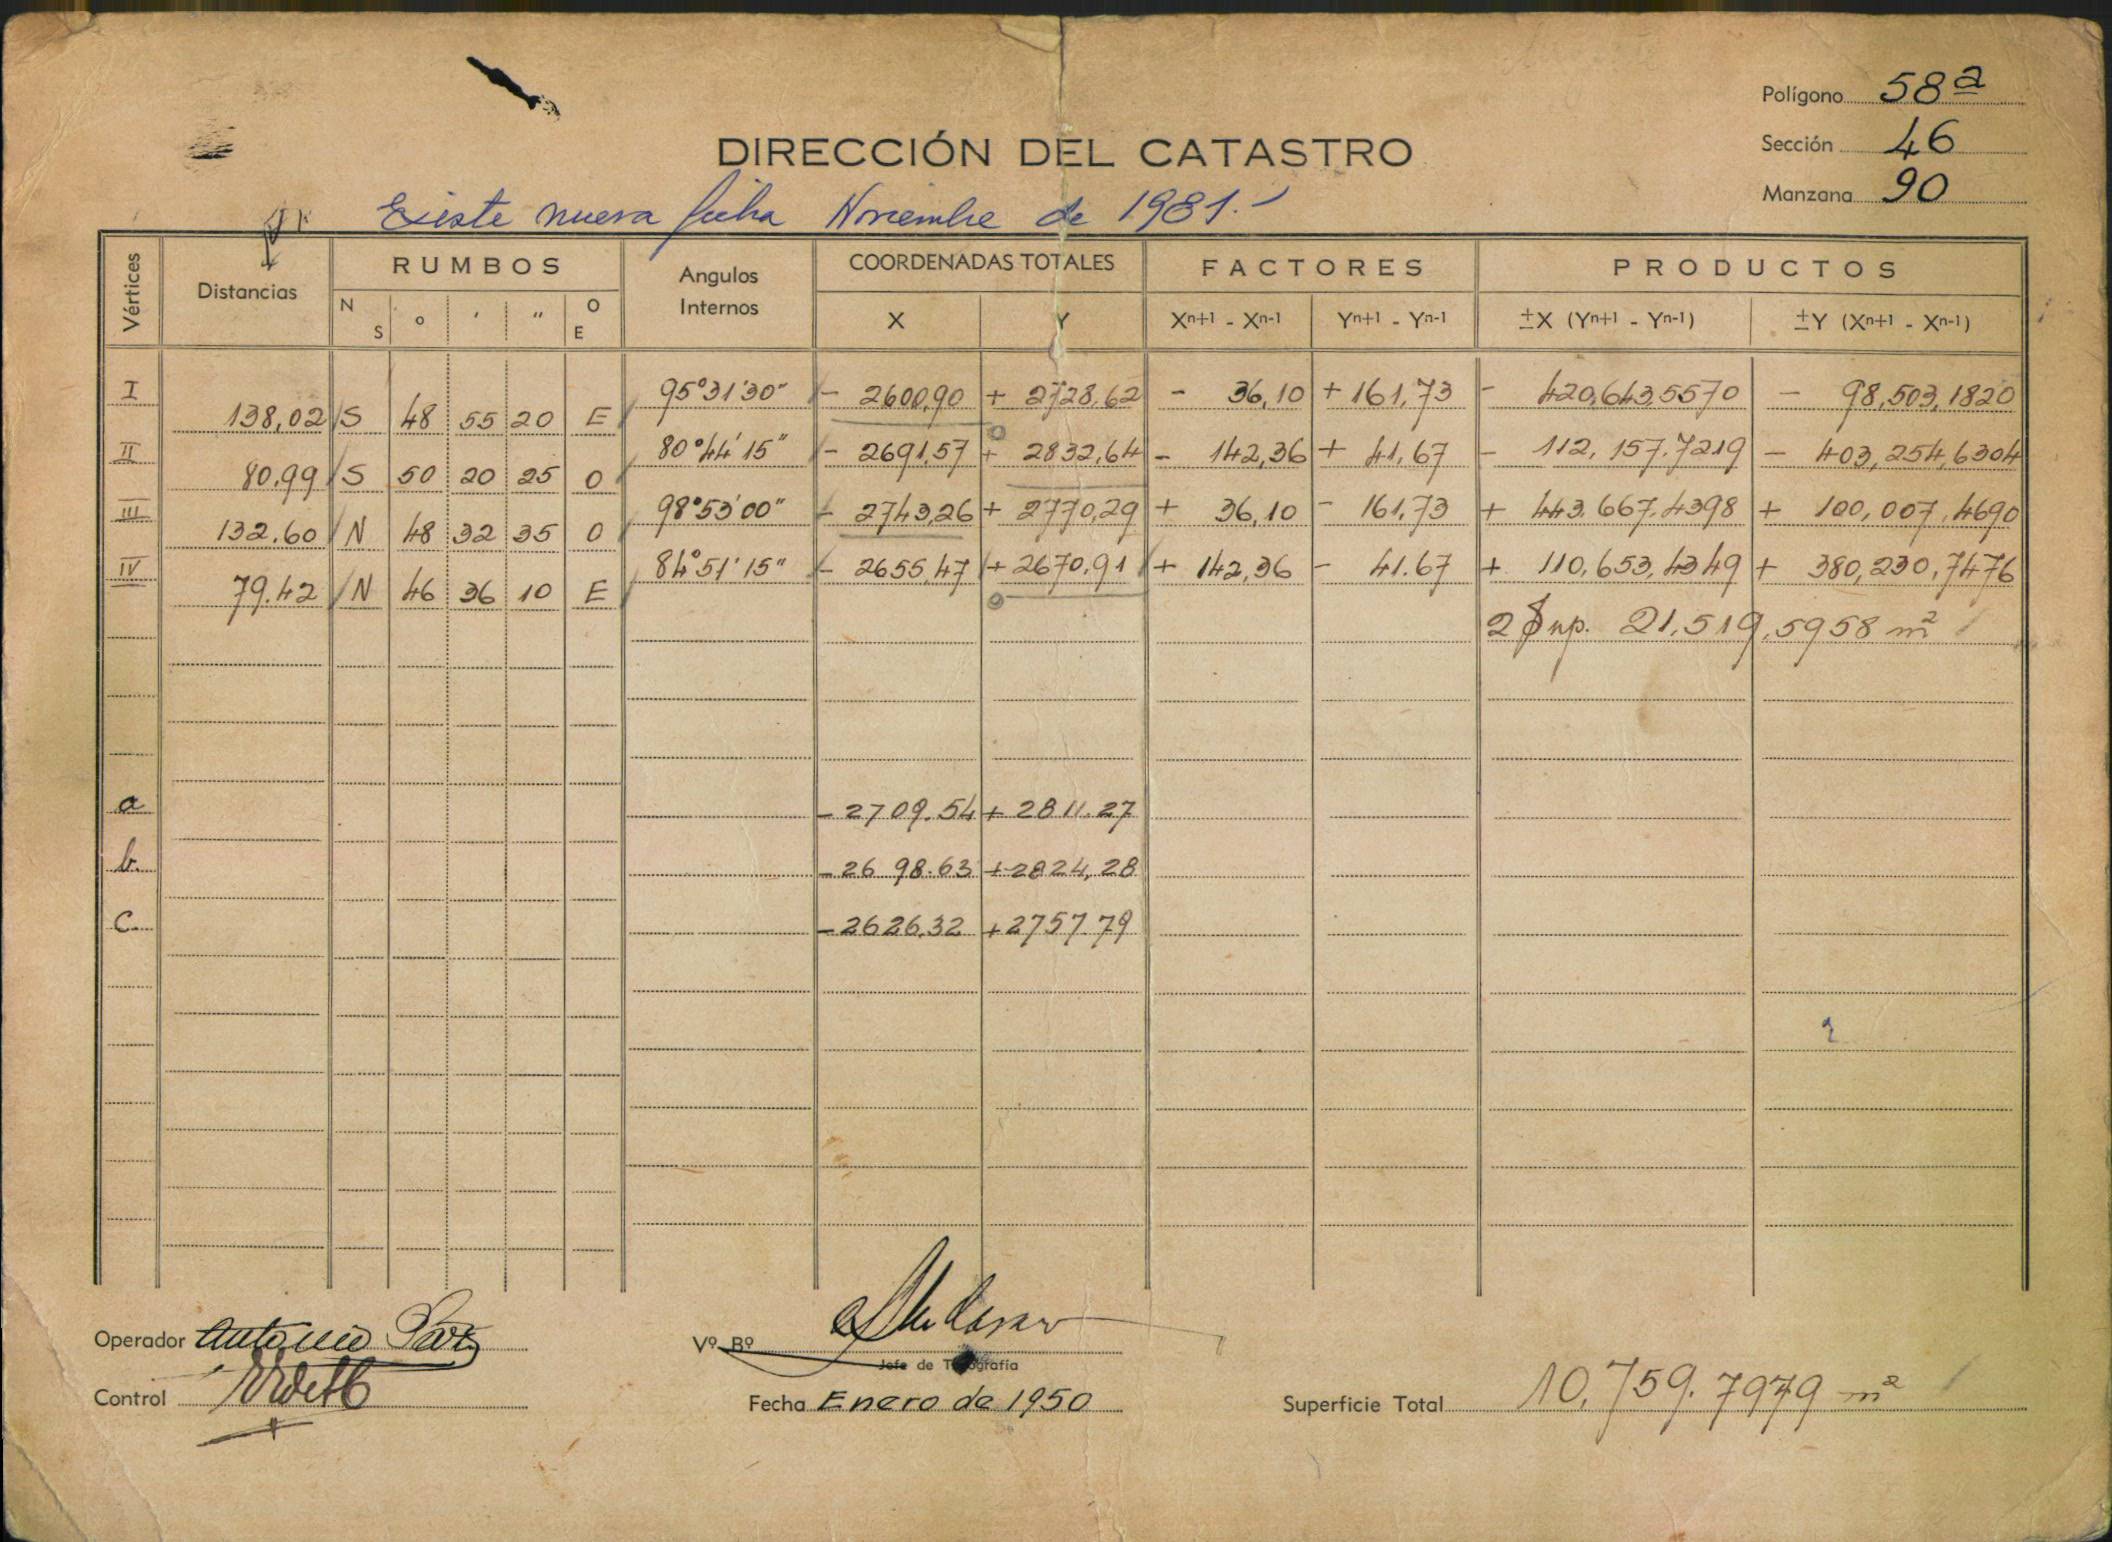 Polígono 58ª
Sección 46
Manzana 90
DIRECCIÓN DEL CATASTRO
Existe nueva ficha Noviembre de 1981.
Vértices Distancias RUMBOS Angulos Internos COORDENADAS TOTALES FACTORES PRODUCTOS
N S ° ' " O E X Y Xn+1 - Xn-1 Yn+1 - Yn-1 ±X (Yn+1 - Yn-1) ±Y (Xn+1 - Xn-1)
I 95°31'30" - 2600,90 + 2728,62 - 36,10 + 161,73 - 420,643,5570 - 98,503,1820
138,02 S 48 55 20 E
II 80°44'15" - 2691,57 + 2832,64 - 142,36 + 41,67 - 112,157.7219 - 403,254,6304
80,99 S 50 20 25 O
III 98°53'00" - 2743,26 + 2770,29 + 36,10 - 161,73 + 443.667,4398 + 100,007,4690
132.60 N 48 32 35 O
IV 84°51'15" - 2655,47 + 2670,91 + 142,36 - 41.67 + 110,653,4349 + 380,230,7476
79.42 N 46 36 10 E
2 Sup. 21,519,5958 m²
a - 2709.54 + 2811.27
b. - 2698.63 + 2824,28
c. - 2626.32 + 2757.79
Operador Antonio
Vº Bº
Jefe de Topografía
Control
Fecha Enero de 1950
Superficie Total 10,759.7979 m²